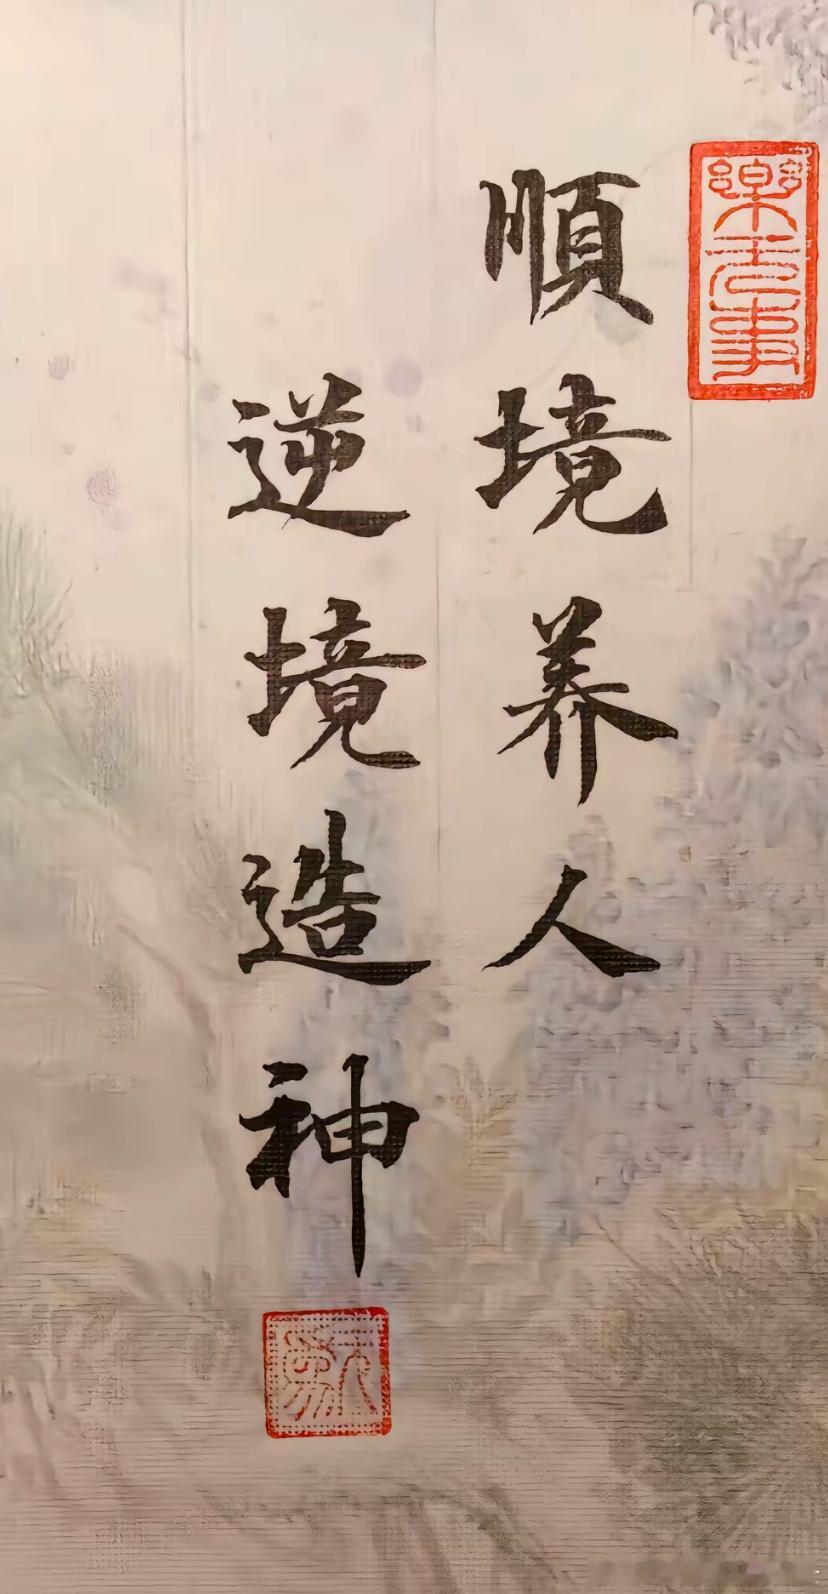 順境养人
逆境造神